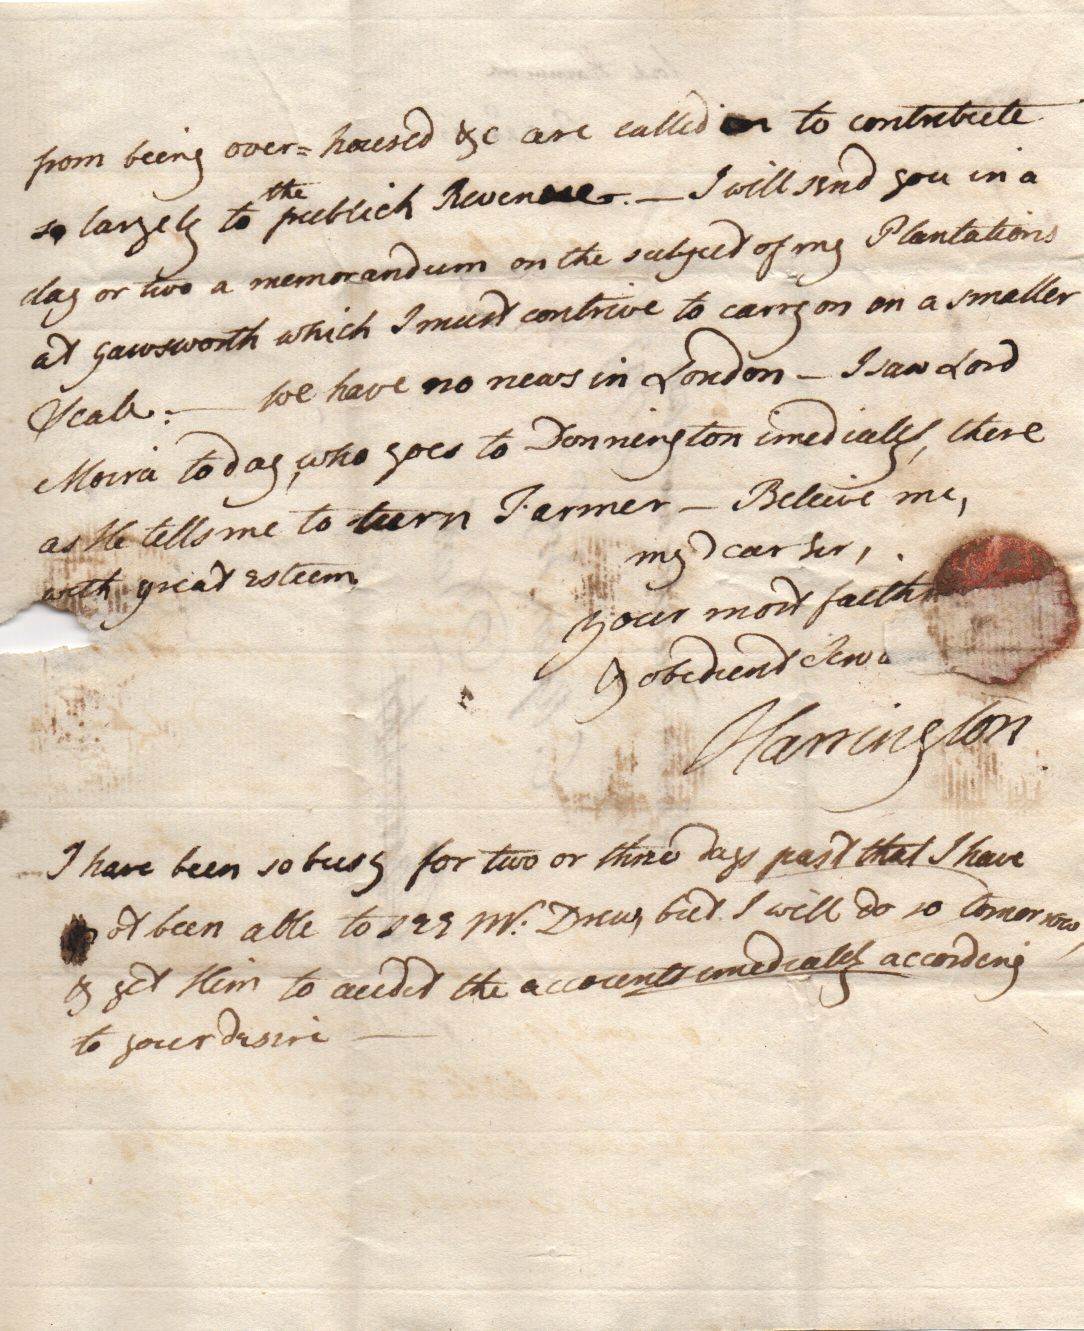 from being over=housed &c are called on to contribute
so largely to the publick Revenue. — I will send you in a
day or two a memorandum on the subject of my Plantations
at Gawsworth which I must contrive to carry on on a smaller
Scale. — We have no news in London — I saw Lord
Moira today, who goes to Donnington imediately, there
as He tells me to turn Farmer — Beleive me,
my dear Sir,
with great esteem
your most faith
& obedient Serv
Harrington
I have been so busy for two or three days past that I have
ot been able to see Mr. Drew, but I will do so tomorrow,
& get Him to audit the accounts imediately according
to your desire —